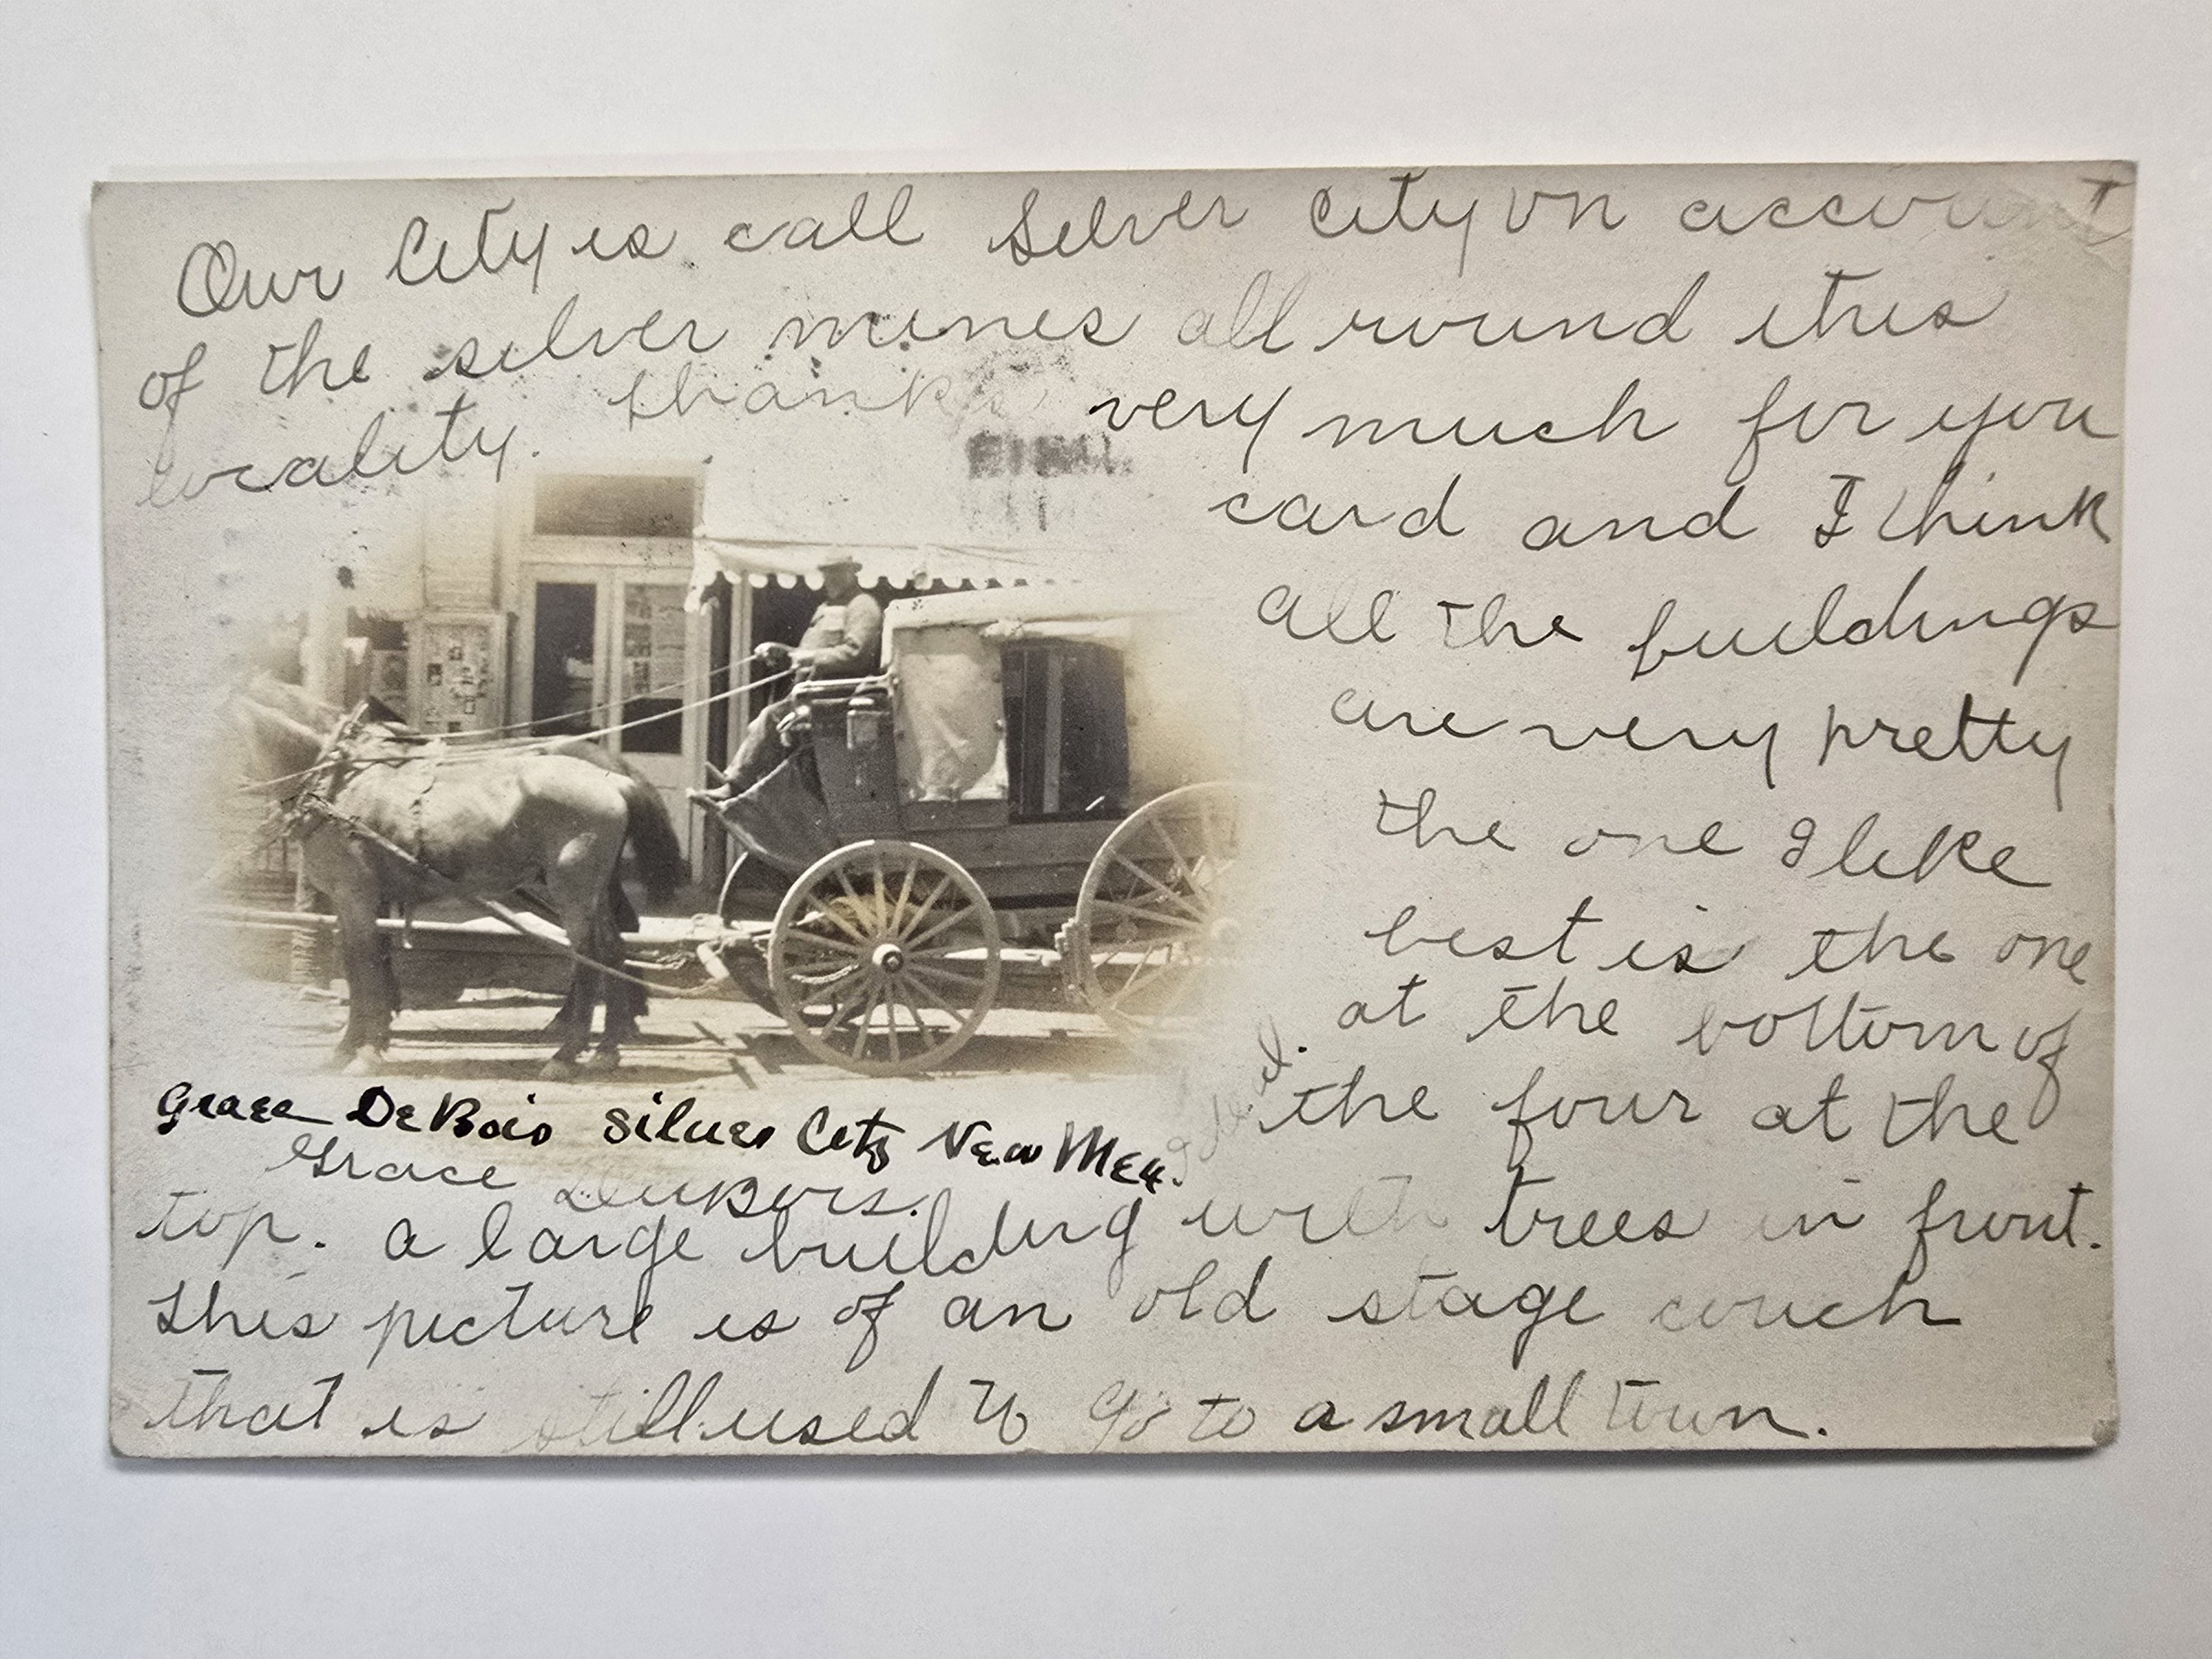 Our City is call Silver City on account
of the silver mines all round this
locality. Thanks very much for you
card and I think
all the buildings
are very pretty
the one I like
best is the one
at the bottom of
the four at the
top. a large building with trees in front.
This picture is of an old stage couch
that is still used to go to a small town.
Grace DeBois Silver City New Mex.
Grace DuBois.